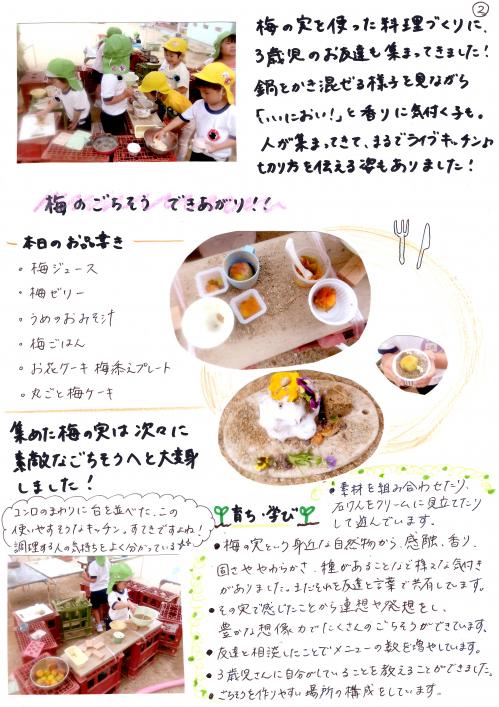 ②
梅の実を使った料理づくりに、
3歳児のお友達も集まってきました!
鍋をかき混ぜる様子を見ながら
「いいにおい!」と香りに気付く子も。
人が集まってきて、まるでライブキッチン♪
切り方を伝える姿もありました!
梅のごちそう できあがり!!
本日のお品書き
・梅ジュース
・梅ゼリー
・うめのおみそ汁
・梅ごはん
・お花ケーキ 梅添えプレート
・丸ごと梅ケーキ
集めた梅の実は次々に
素敵なごちそうへと大変身
しました!
コンロのまわりに台を並べた、この
使いやすそうなキッチン。すてきですよね!
調理する人の気持ちをよく分かっている
育ち・学び
・素材を組み合わせたり、
石けんをクリームに見立てたり
して遊んでいます。
・梅の実という身近な自然物から、感触、香り、
固さややわらかさ、種があることなど様々な気付き
がありました。またそれを友達と言葉で共有しています。
・その実で感じたことから連想や発想をし、
豊かな想像力でたくさんのごちそうができています。
・友達と相談したことでメニューの数を増やしています。
・3歳児さんに自分がしていることを教えることができました。
・ごちそうを作りやすい場所の構成をしています。